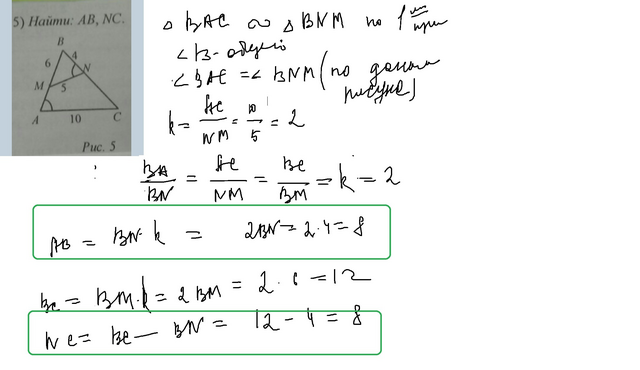 5) Найти: AB, NC.
B
6 4
N
M 5
A 10 C
Рис. 5
△ BAC ∾ △ BNM по 1
∠B - общий
∠BAC = ∠ BNM (по
k = AC/NM = 10/5 = 2
BA/BN = AC/NM = BC/BM = k = 2
AB = BN·k = 2BN = 2·4 = 8
BC = BM·k = 2BM = 2·6 = 12
NC = BC - BN = 12 - 4 = 8